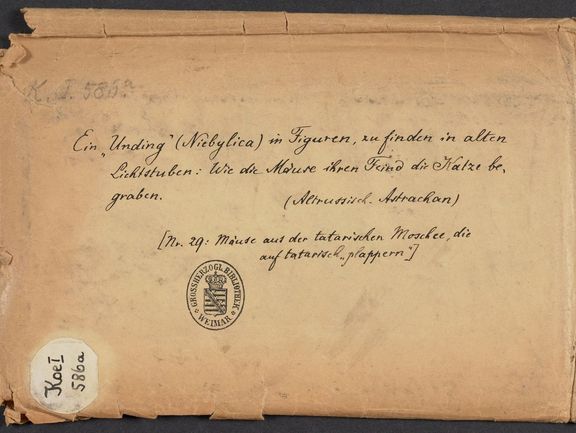 K. I. 586a
Ein „Unding" (Niebylica) in Figuren, zu finden in alten
Lichtstuben: Wie die Mäuse ihren Feind die Katze be-
graben.
(Altrussisch. Astrachan)
[Nr. 29: Mäuse aus der tatarischen Moschee, die
auf tatarisch „plappern"]
GROSSHERZOGL. BIBLIOTHEK
WEIMAR
Koe I
586a